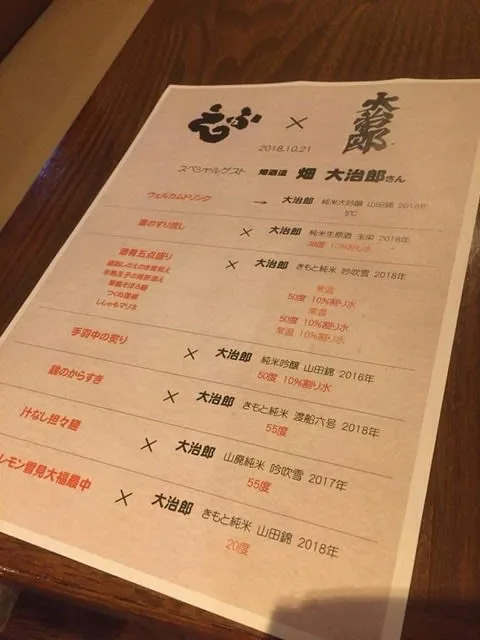 えふ × 大治郎
2018.10.21
スペシャルゲスト 畑酒造 畑 大治郎さん
ウェルカムドリンク → 大治郎 純米大吟醸 山田錦 2018年
5℃
のすり流し × 大治郎 純米生原酒 玉栄 2018年
38度 10%割り水
酒肴五点盛り × 大治郎 きもと純米 吟吹雪 2018年
常温
50度 10%割り水
常温
50度 10%割り水
常温 10%割り水
つくね蓮根
ししゃもマリネ
手羽中の炙り × 大治郎 純米吟醸 山田錦 2016年
50度 10%割り水
鶏のからすき × 大治郎 きもと純米 渡船六号 2018年
55度
汁なし担々麺 × 大治郎 山廃純米 吟吹雪 2017年
55度
レモン雪見大福最中 × 大治郎 きもと純米 山田錦 2018年
20度